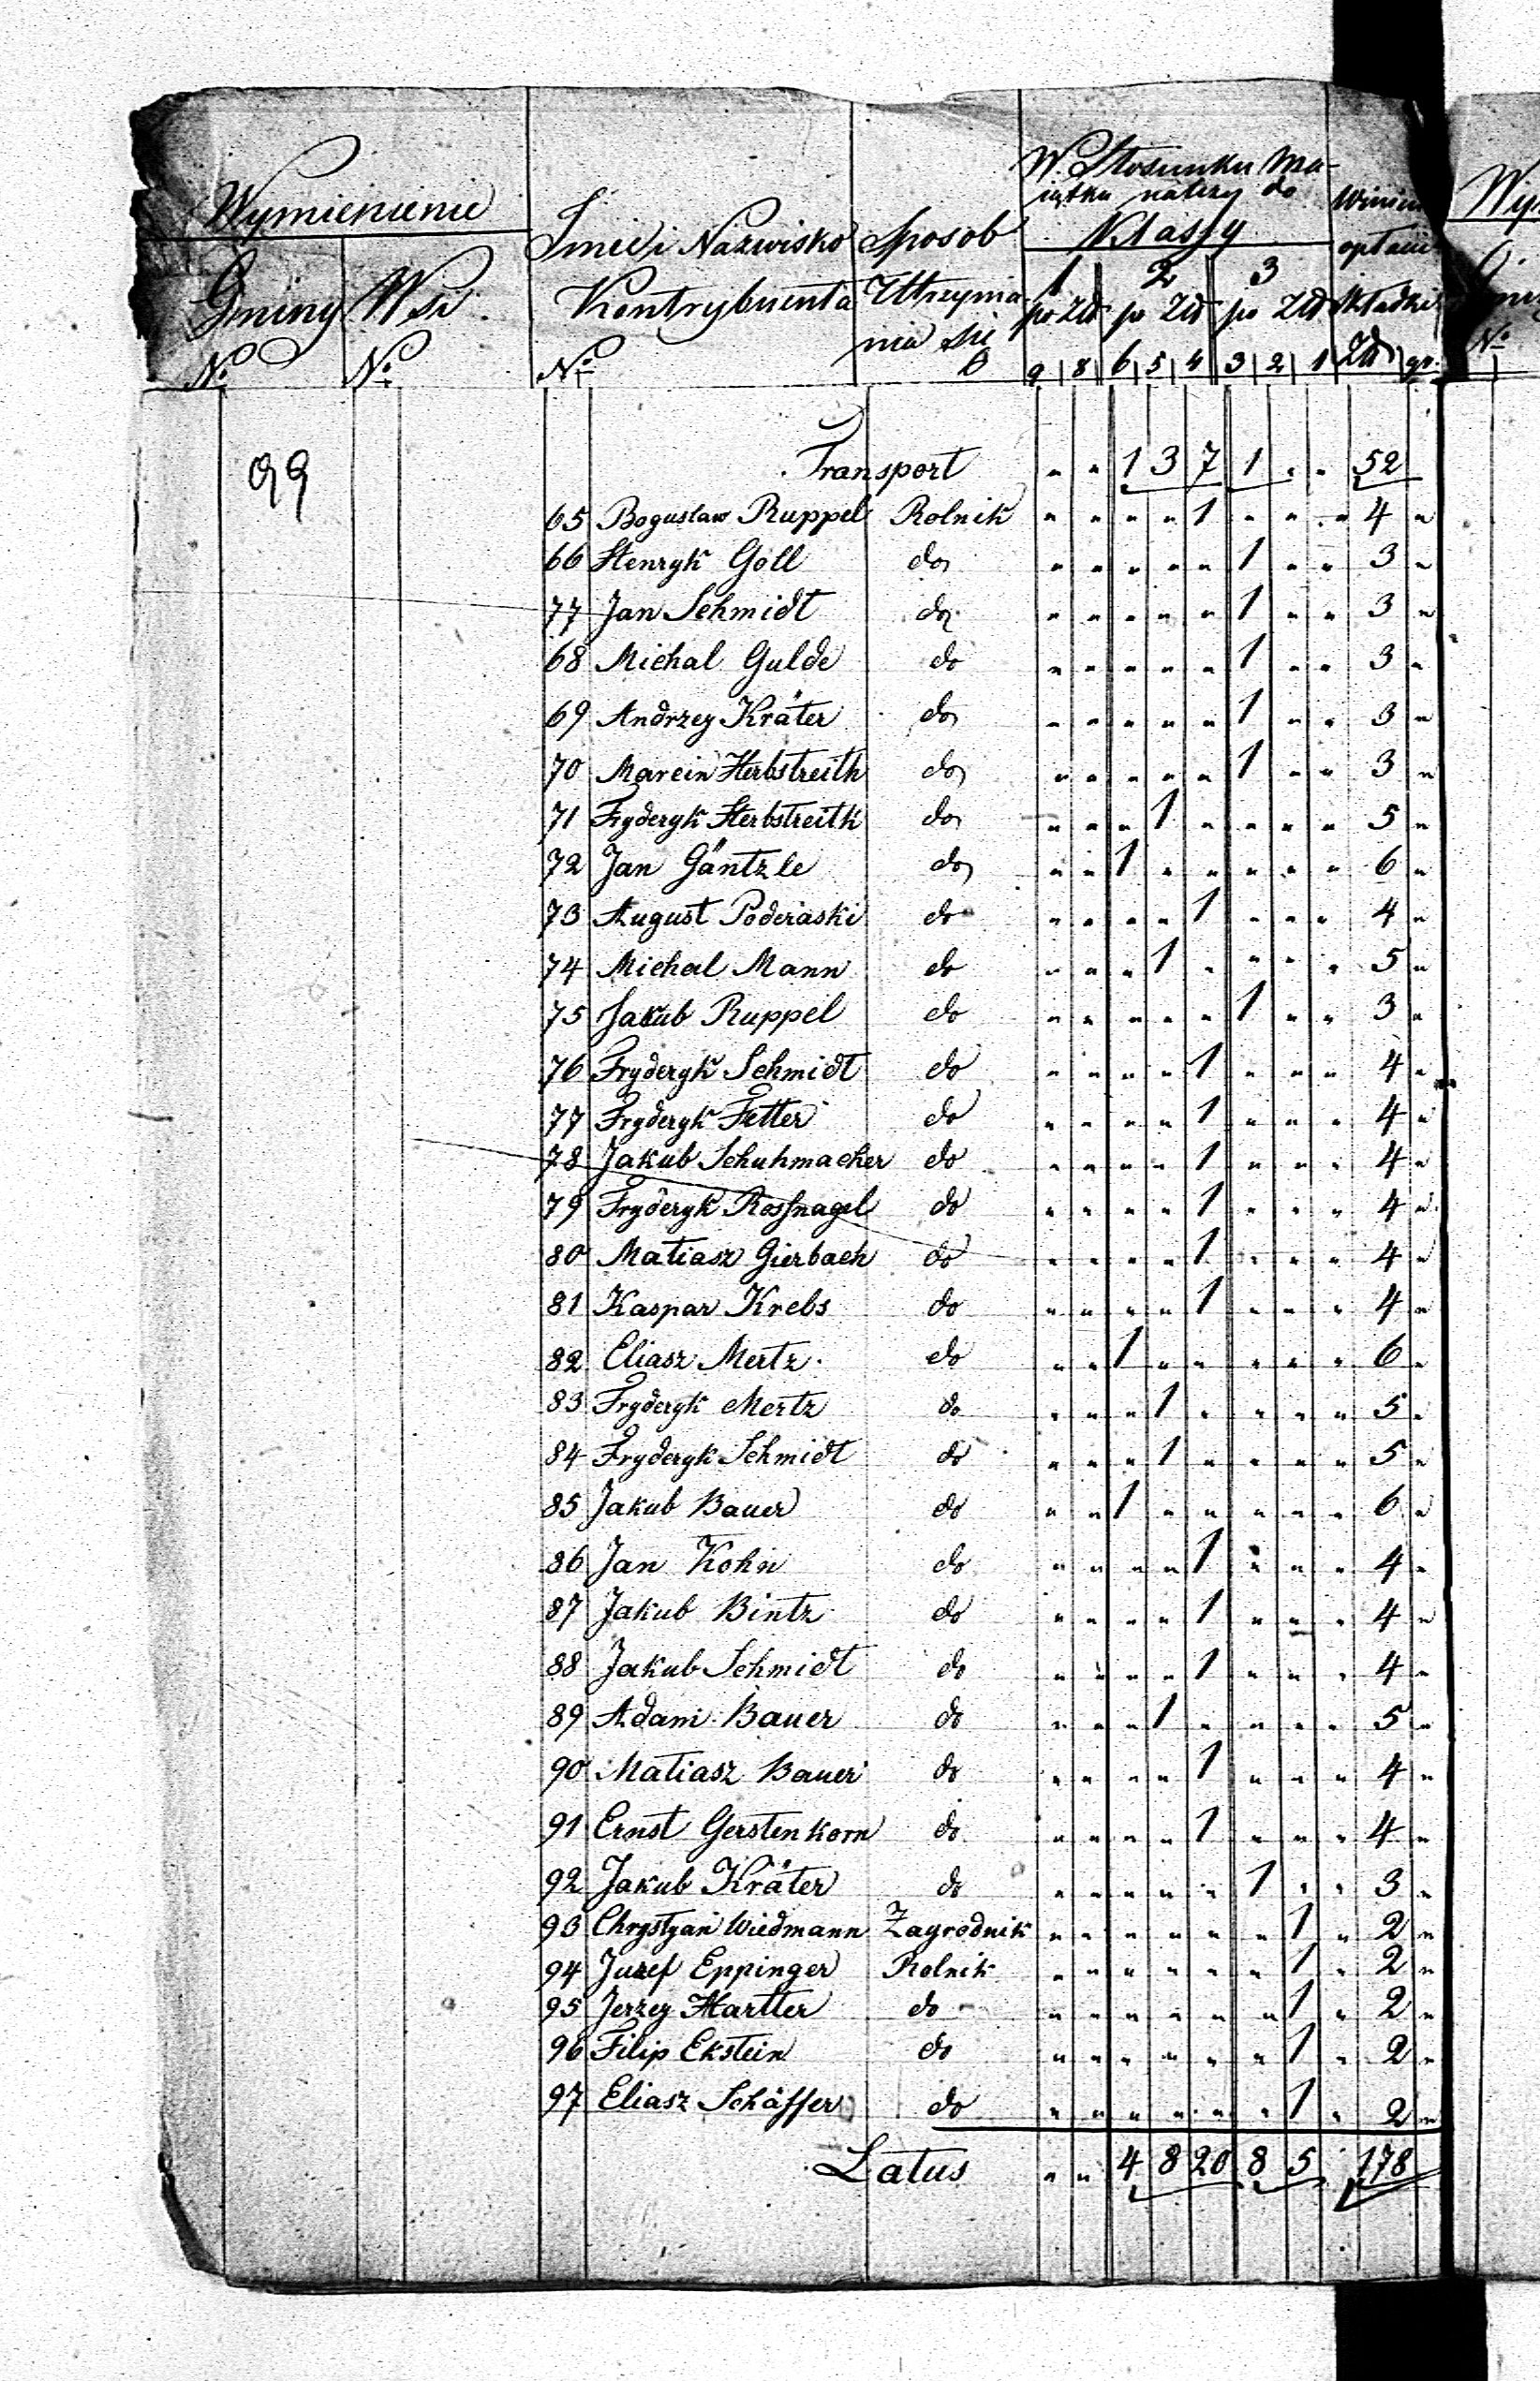 Wymienienie
Gminy Wsi
No No
Imie i Nazwisko
Kontrybuenta
No
Sposob
Utrzyma
nia się
W Stosunku Ma-
iątku należy do
Klassy
1 2 3
po Złł po Złł po Złł
9 8 6 5 4 3 2 1
Winien
opłacić
Składki
Złł gr.
99
Transport " " 1 3 7 1 " " 52
65 Bogusław Ruppel Rolnik " " " " 1 " " " 4 "
66 Henryk Goll do " " " " " 1 " " 3 "
77 Jan Schmidt do " " " " " 1 " " 3 "
68 Michal Gulde do " " " " " 1 " " 3 "
69 Andrzey Kräter do " " " " " 1 " " 3 "
70 Marcin Herbstreith do " " " " " 1 " " 3 "
71 Fryderyk Herbstreith do " " " 1 " " " " 5 "
72 Jan Gäntzle do " " 1 " " " " " 6 "
73 August Poderaski do " " " " 1 " " " 4 "
74 Michal Mann do " " " 1 " " " " 5 "
75 Jakub Ruppel do " " " " " 1 " " 3 "
76 Fryderyk Schmidt do " " " " 1 " " " 4 "
77 Fryderyk Fetter do " " " " 1 " " " 4 "
78 Jakub Schuhmacher do " " " " 1 " " " 4 "
79 Fryderyk Rossnagel do " " " " 1 " " " 4 "
80 Matiasz Gierbach do " " " " 1 " " " 4 "
81 Kaspar Krebs do " " " " 1 " " " 4 "
82 Eliasz Mertz do " " 1 " " " " " 6 "
83 Fryderyk Mertz do " " " 1 " " " " 5 "
84 Fryderyk Schmidt do " " " 1 " " " " 5 "
85 Jakub Bauer do " " 1 " " " " " 6 "
86 Jan Kohn do " " " " 1 " " " 4 "
87 Jakub Bintz do " " " " 1 " " " 4 "
88 Jakub Schmidt do " " " " 1 " " " 4 "
89 Adam Bauer do " " " 1 " " " " 5 "
90 Matiasz Bauer do " " " " 1 " " " 4 "
91 Ernst Gerstenkorn do " " " " 1 " " " 4 "
92 Jakub Kräter do " " " " " 1 " " 3 "
93 Chrystyan Wiedmann Zagrodnik " " " " " " 1 " 2 "
94 Juzef Eppinger Rolnik " " " " " " 1 " 2 "
95 Jerzey Hartter do " " " " " " 1 " 2 "
96 Filip Ekstein do " " " " " " 1 " 2 "
97 Eliasz Schäffer do " " " " " " 1 " 2 "
Latus " " 4 8 20 8 5 178